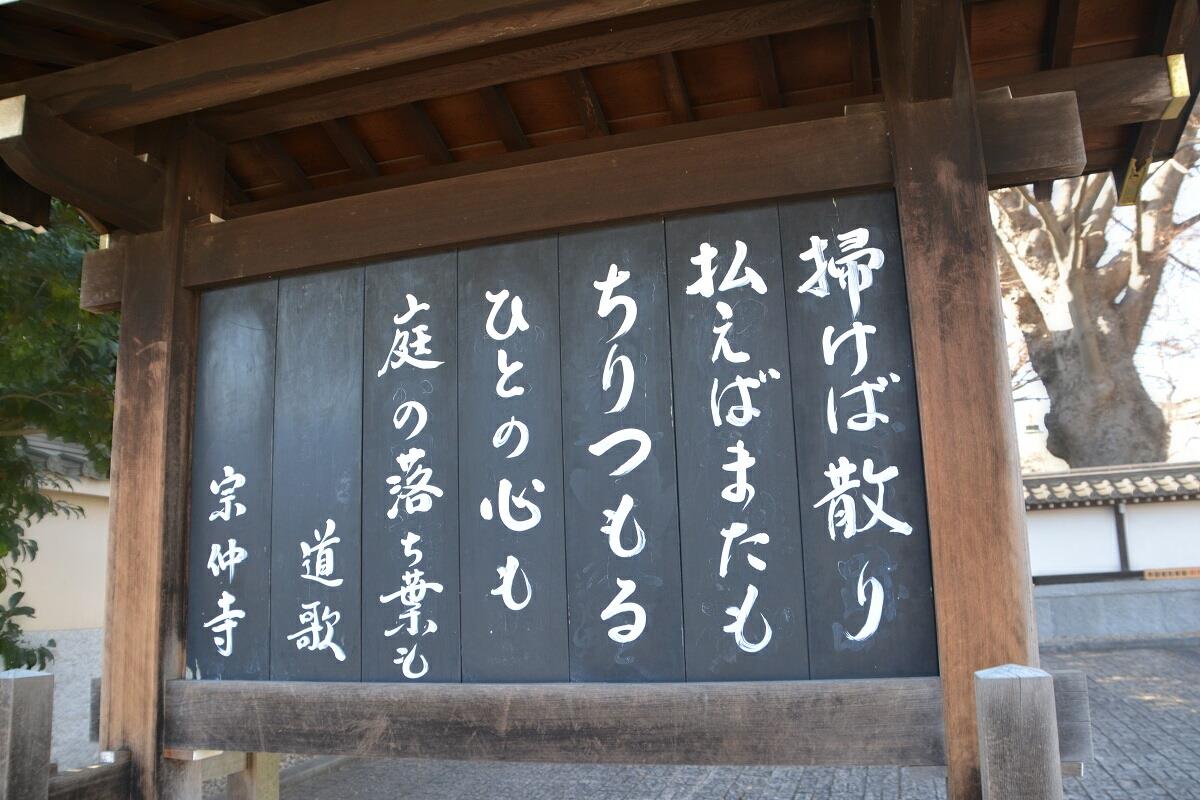 掃けば散り
払えばまたも
ちりつもる
ひとの心も
庭の落ち葉も
道歌
宗仲寺